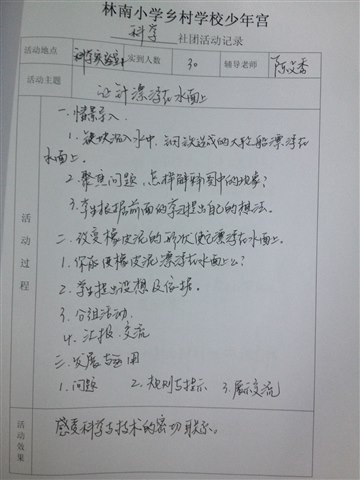 林南小学乡村学校少年宫
科学 社团活动记录
活动地点 科学实验室 实到人数 30 辅导老师 陈文香
活动主题 让它漂浮在水面上
活动过程
一.情景导入
1.铁块沉入水中.钢铁造成的大轮船漂浮在
水面上。
2.聚焦问题,怎样解释图中的现象?
3.学生根据前面的学习提出自己的想法。
二.改变橡皮泥的形状使它漂浮在水面上。
1.你能使橡皮泥漂浮在水面上么?
2.学生提出设想及依据。
3.分组活动.
4.汇报.交流
三.发展与应用
1.问题 2.规则与提示 3.展示交流
活动效果 感受科学与技术的密切联系。